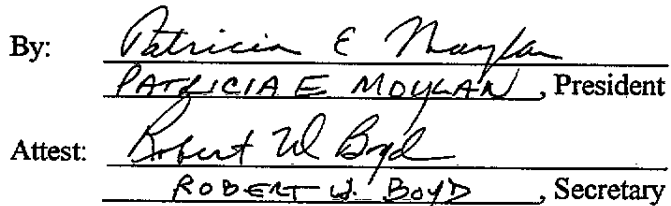 By: Patricia E Moylan
PATRICIA E MOYLAN, President
Attest: Robert W Boyd
ROBERT W. BOYD, Secretary